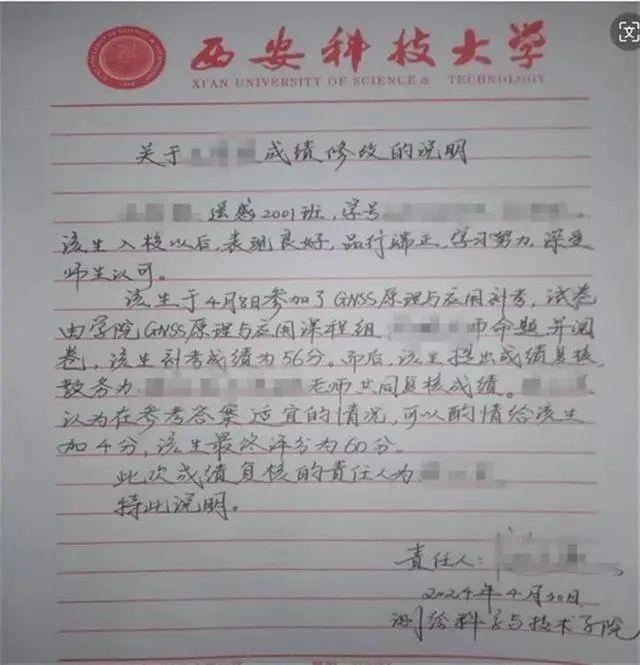 西安科技大学
XI'AN UNIVERSITY OF SCIENCE & TECHNOLOGY
关于 成绩修改的说明
遥感2001班,学号
该生入校以后,表现良好,品行端正,学习努力,深受
师生认可。
该生于4月8日参加了GNSS原理与应用补考,试卷
由学院GNSS原理与应用课程组 师命题并阅
卷,该生补考成绩为56分。而后,该生提出成绩复核,
教务为 老师共同复核成绩。
认为在参考答案适宜的情况,可以酌情给该生
加4分,该生最终评分为60分。
此次成绩复核的责任人为
特此说明。
责任人:
2024年4月30日
测绘科学与技术学院